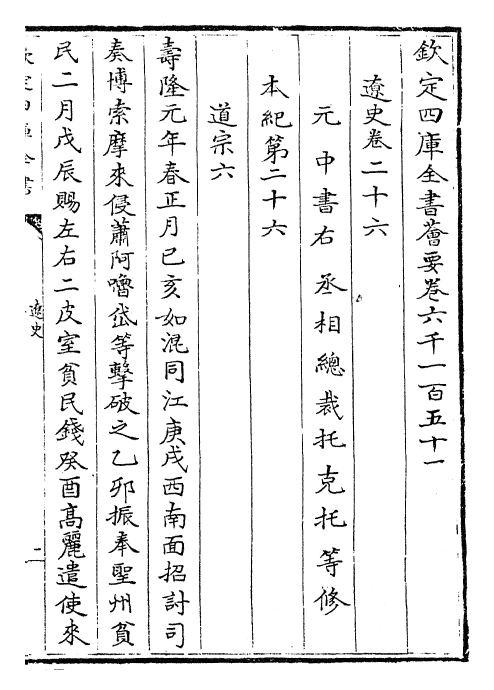 欽定四庫全書薈要卷六千一百五十一
遼史卷二十六
元中書右丞相總裁托克托等修
本紀第二十六
道宗六
壽隆元年春正月己亥如混同江庚戌西南面招討司
奏博索摩來侵蕭阿嚕岱等擊破之乙卯振奉聖州貧
民二月戊辰賜左右二皮室貧民錢癸酉高麗遣使來
遼史